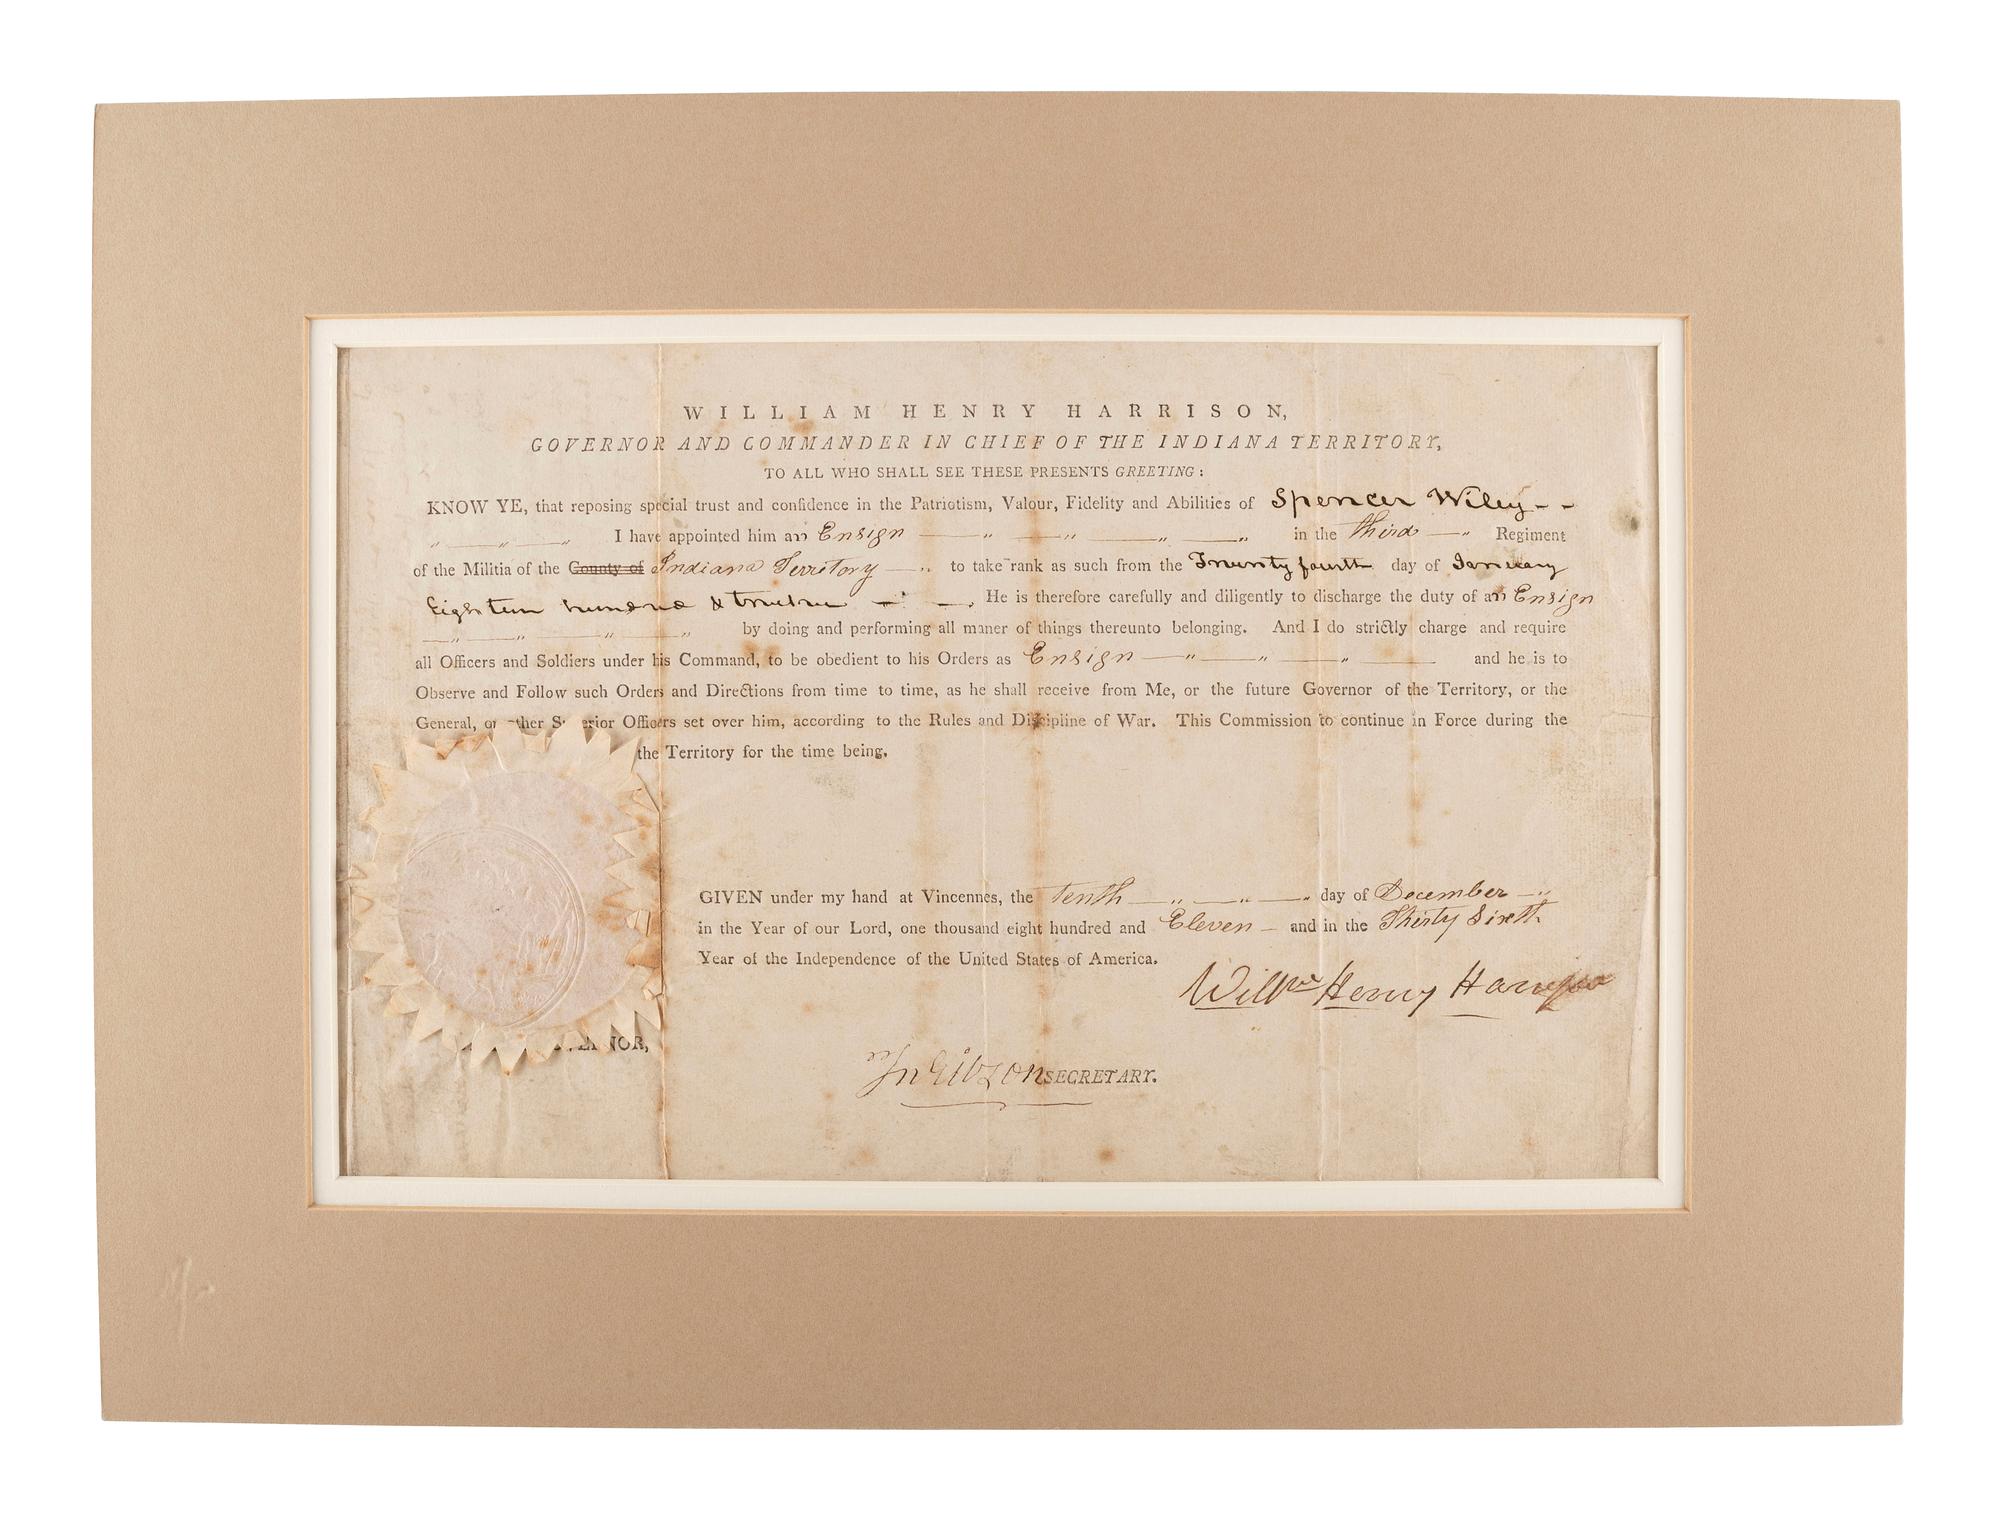 WILLIAM HENRY HARRISON,
GOVERNOR AND COMMANDER IN CHIEF OF THE INDIANA TERRITORY,
TO ALL WHO SHALL SEE THESE PRESENTS GREETING:
KNOW YE, that reposing special trust and confidence in the Patriotism, Valour, Fidelity and Abilities of Spencer Wiley
I have appointed him an Ensign in the third Regiment
of the Militia of the County of Indiana Territory to take rank as such from the Twenty fourth day of January
Eighteen hundred & twelve He is therefore carefully and diligently to discharge the duty of an Ensign
by doing and performing all maner of things thereunto belonging. And I do strictly charge and require
all Officers and Soldiers under his Command, to be obedient to his Orders as Ensign and he is to
Observe and Follow such Orders and Directions from time to time, as he shall receive from Me, or the future Governor of the Territory, or the
General, or other Superior Officers set over him, according to the Rules and Discipline of War. This Commission to continue in Force during the
the Territory for the time being.
GIVEN under my hand at Vincennes, the tenth day of December
in the Year of our Lord, one thousand eight hundred and Eleven and in the Thirty Sixth
Year of the Independence of the United States of America.
Willm Henry Harrison
Jno Gibson SECRETARY.